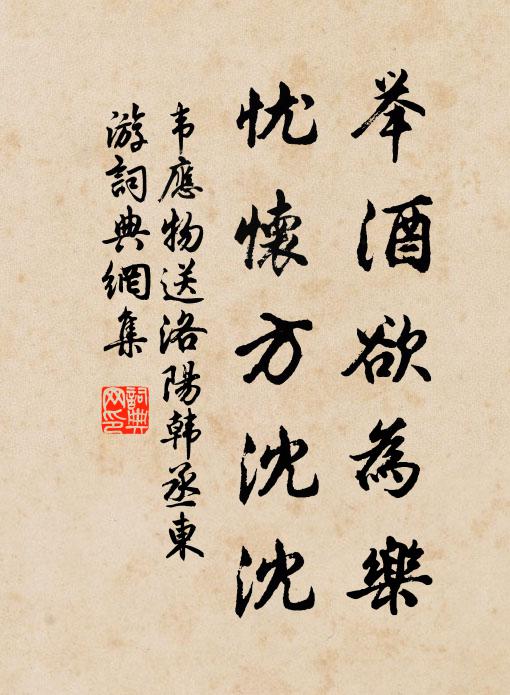 举酒欲為樂
忧懷方沈沈
韦應物送洛陽韩丞東
游詞典網集
詞典
网印